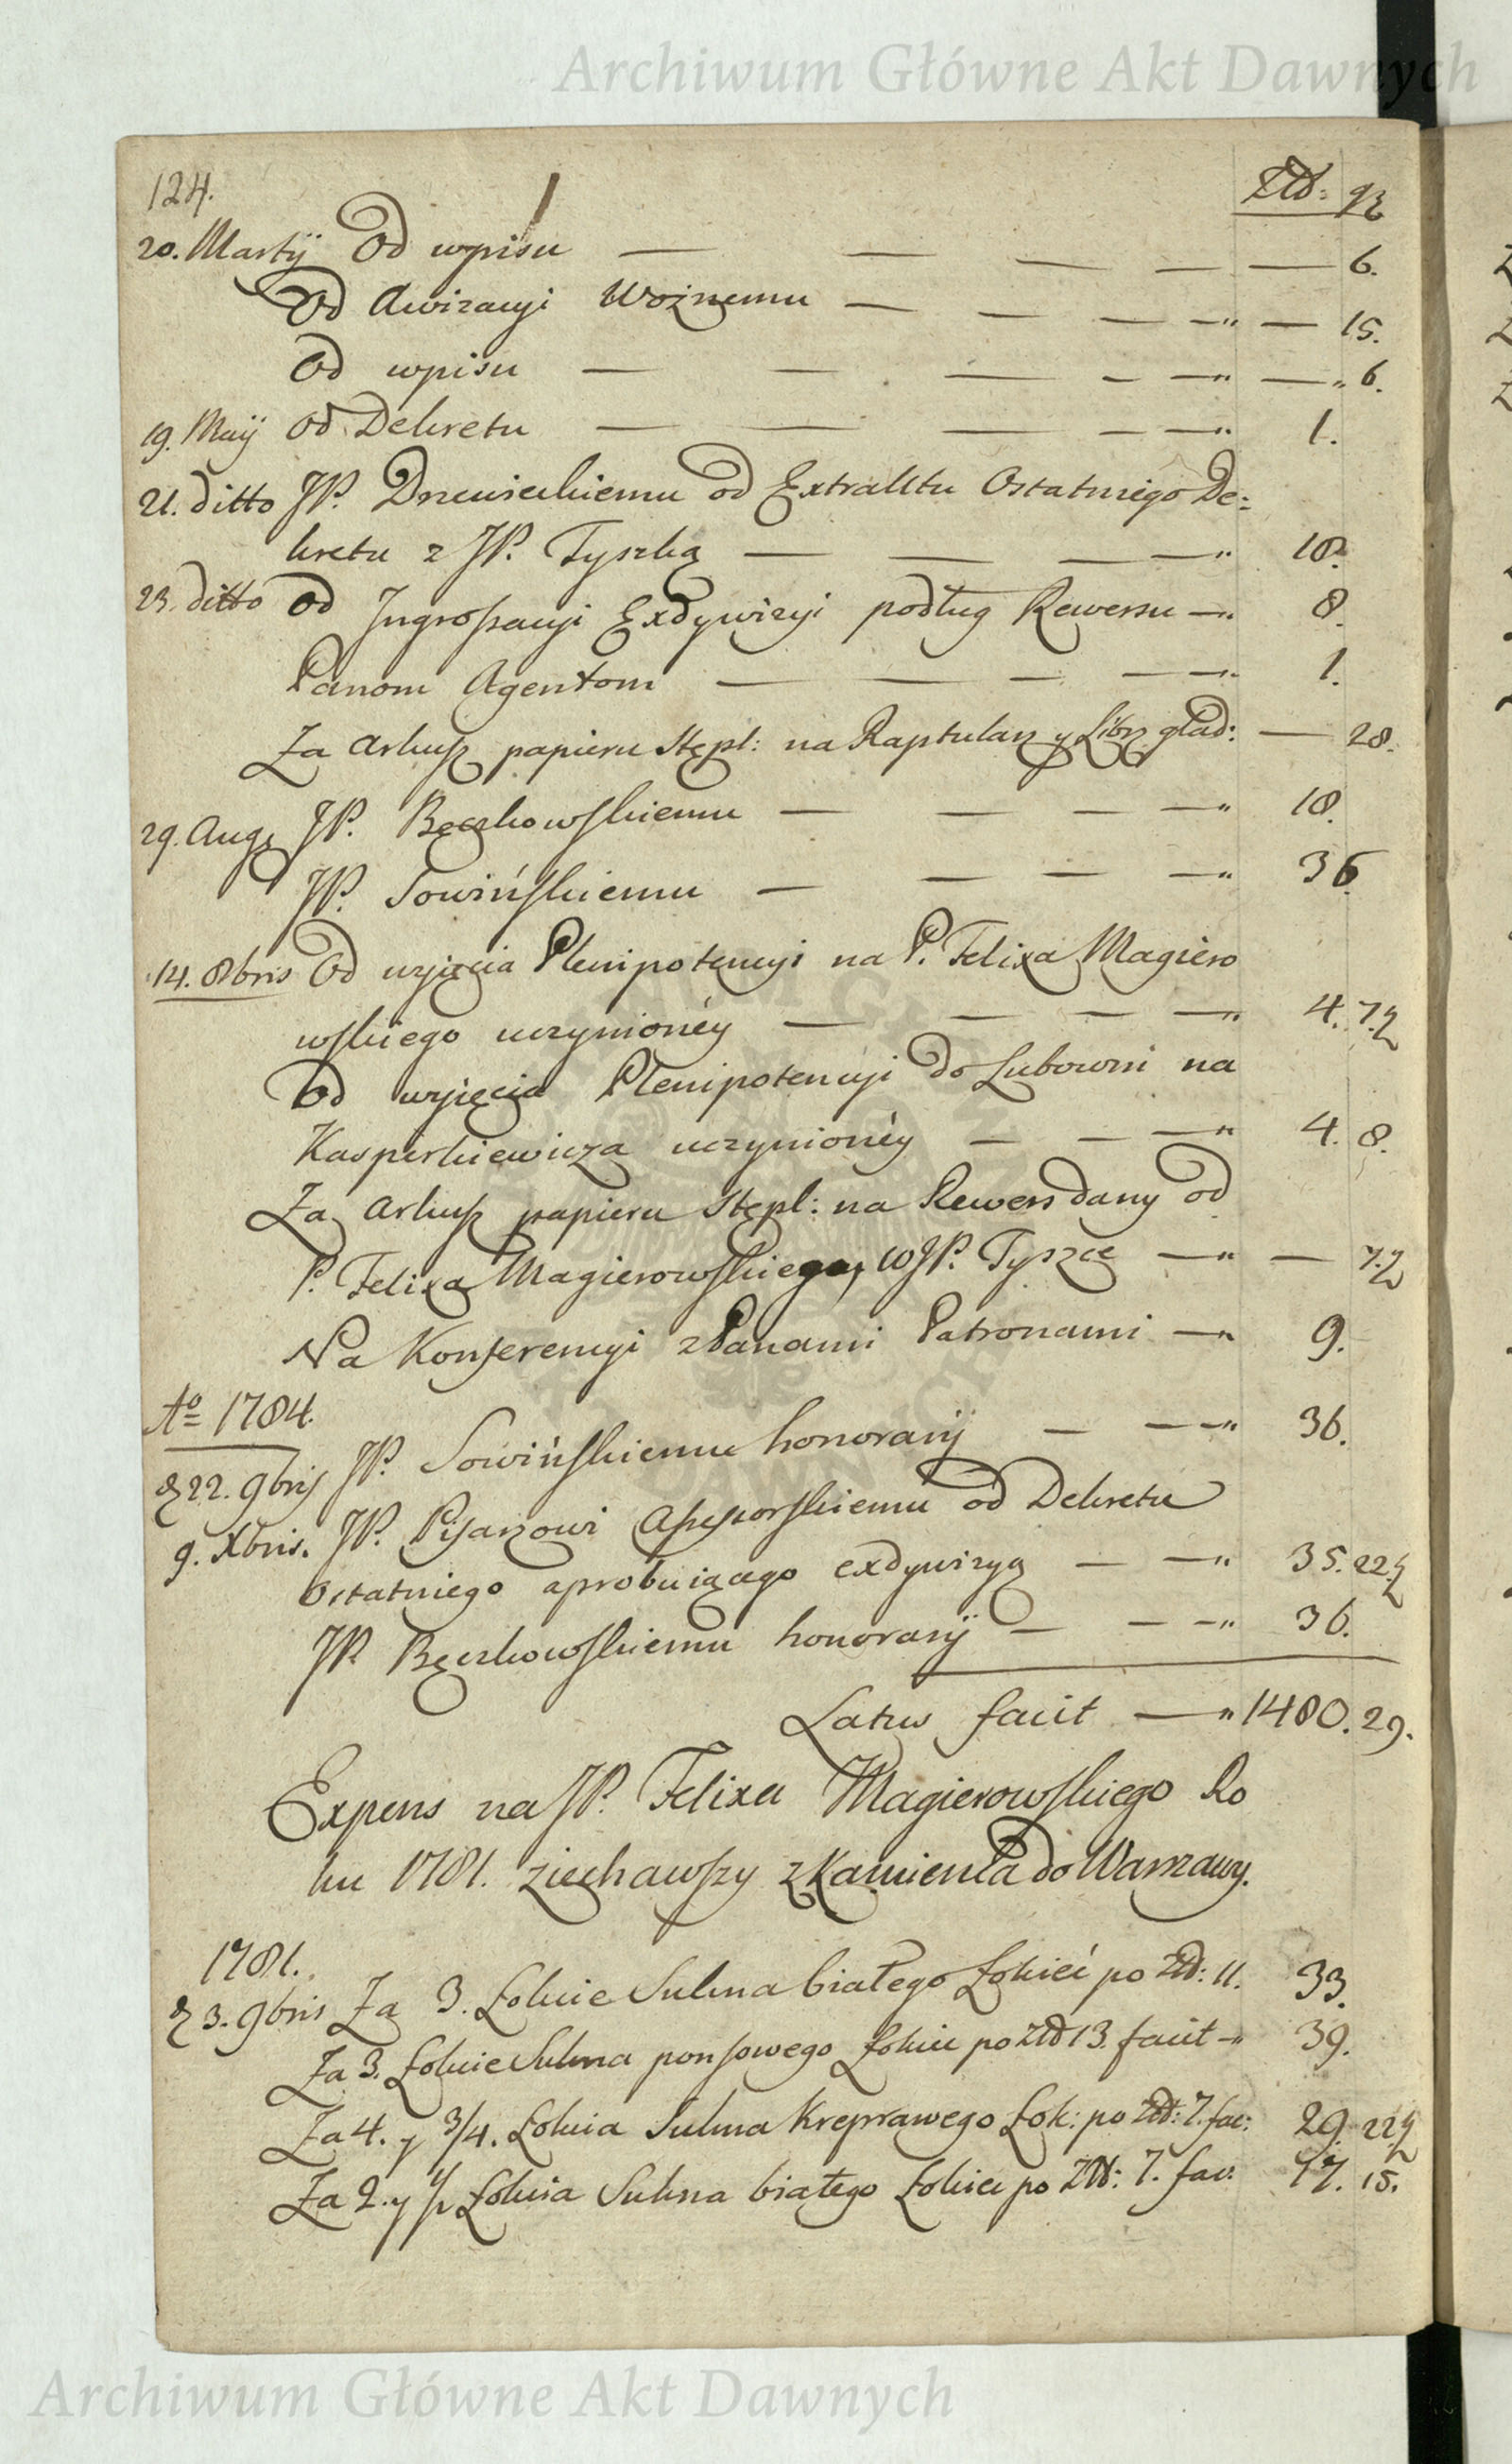 Archiwum Główne Akt Dawnych
124. Złł: gr
20. Martij Od wpisu — — — — — 6.
Od Awizacyi Woźnemu — — — — — 15.
Od wpisu — — — — — — 6.
19. Maij od Dekretu — — — — — 1.
21. ditto JP. Drzewieckiemu od Extraktu Ostatniego De=
kretu z JP. Tyszką — — — — 18.
23. ditto od Ingrossacyi Exdywizyi podług Rewersu — 8.
Panom Agentom — — — — — 1.
Za arkusz papieru Stępl: na Raptularz y Libr: gład: — 28.
29. Aug JP. Bęczkowskiemu — — — — 18.
JP. Sowińskiemu — — — — 36.
14. 8bris Od wyjęcia Plenipotencyi na P. Felixa Magiero
wskiego uczynionéy — — — — 4. 7.½
Od wyjęcia Plenipotencyi do Lubowni na
Kasperkiewicza uczynionéy — — — 4. 8.
Za arkusz papieru Stępl: na Rewers dany od
P. Felixa Magierowskiego, WJP. Tyszce — — 7.½
Na Konferencyi z Panami Patronami — 9.
Ao 1784.
d 22. 9bris JP. Sowińskiemu honorarij — — — 36.
9. Xbris. JP. Pisarzowi Assessorskiemu od Dekretu
Ostatniego aprobuiącego exdywizyą — — 35. 22½
JP. Bęczkowskiemu honorarij — — — 36.
Latus facit — 1480. 29.
Expens na JP. Felixa Magierowskiego Ro
ku 1781. ziechawszy z Kamieńca do Warszawy.
1781.
d 3. 9bris Za 3. Łokcie Sukna białego Łokieć po Złł: 11. 33.
Za 3. Łokcie Sukna ponsowego Łokieć po Złł 13. facit — 39.
Za 4. y 3/4. Łokcia Sukna Kreprawego Łok: po Złł: 7. fac: 29. 22½
Za 2. y ½ Łokcia Sukna białego Łokieć po Złł: 7. fac: 17. 15.
Archiwum Główne Akt Dawnych